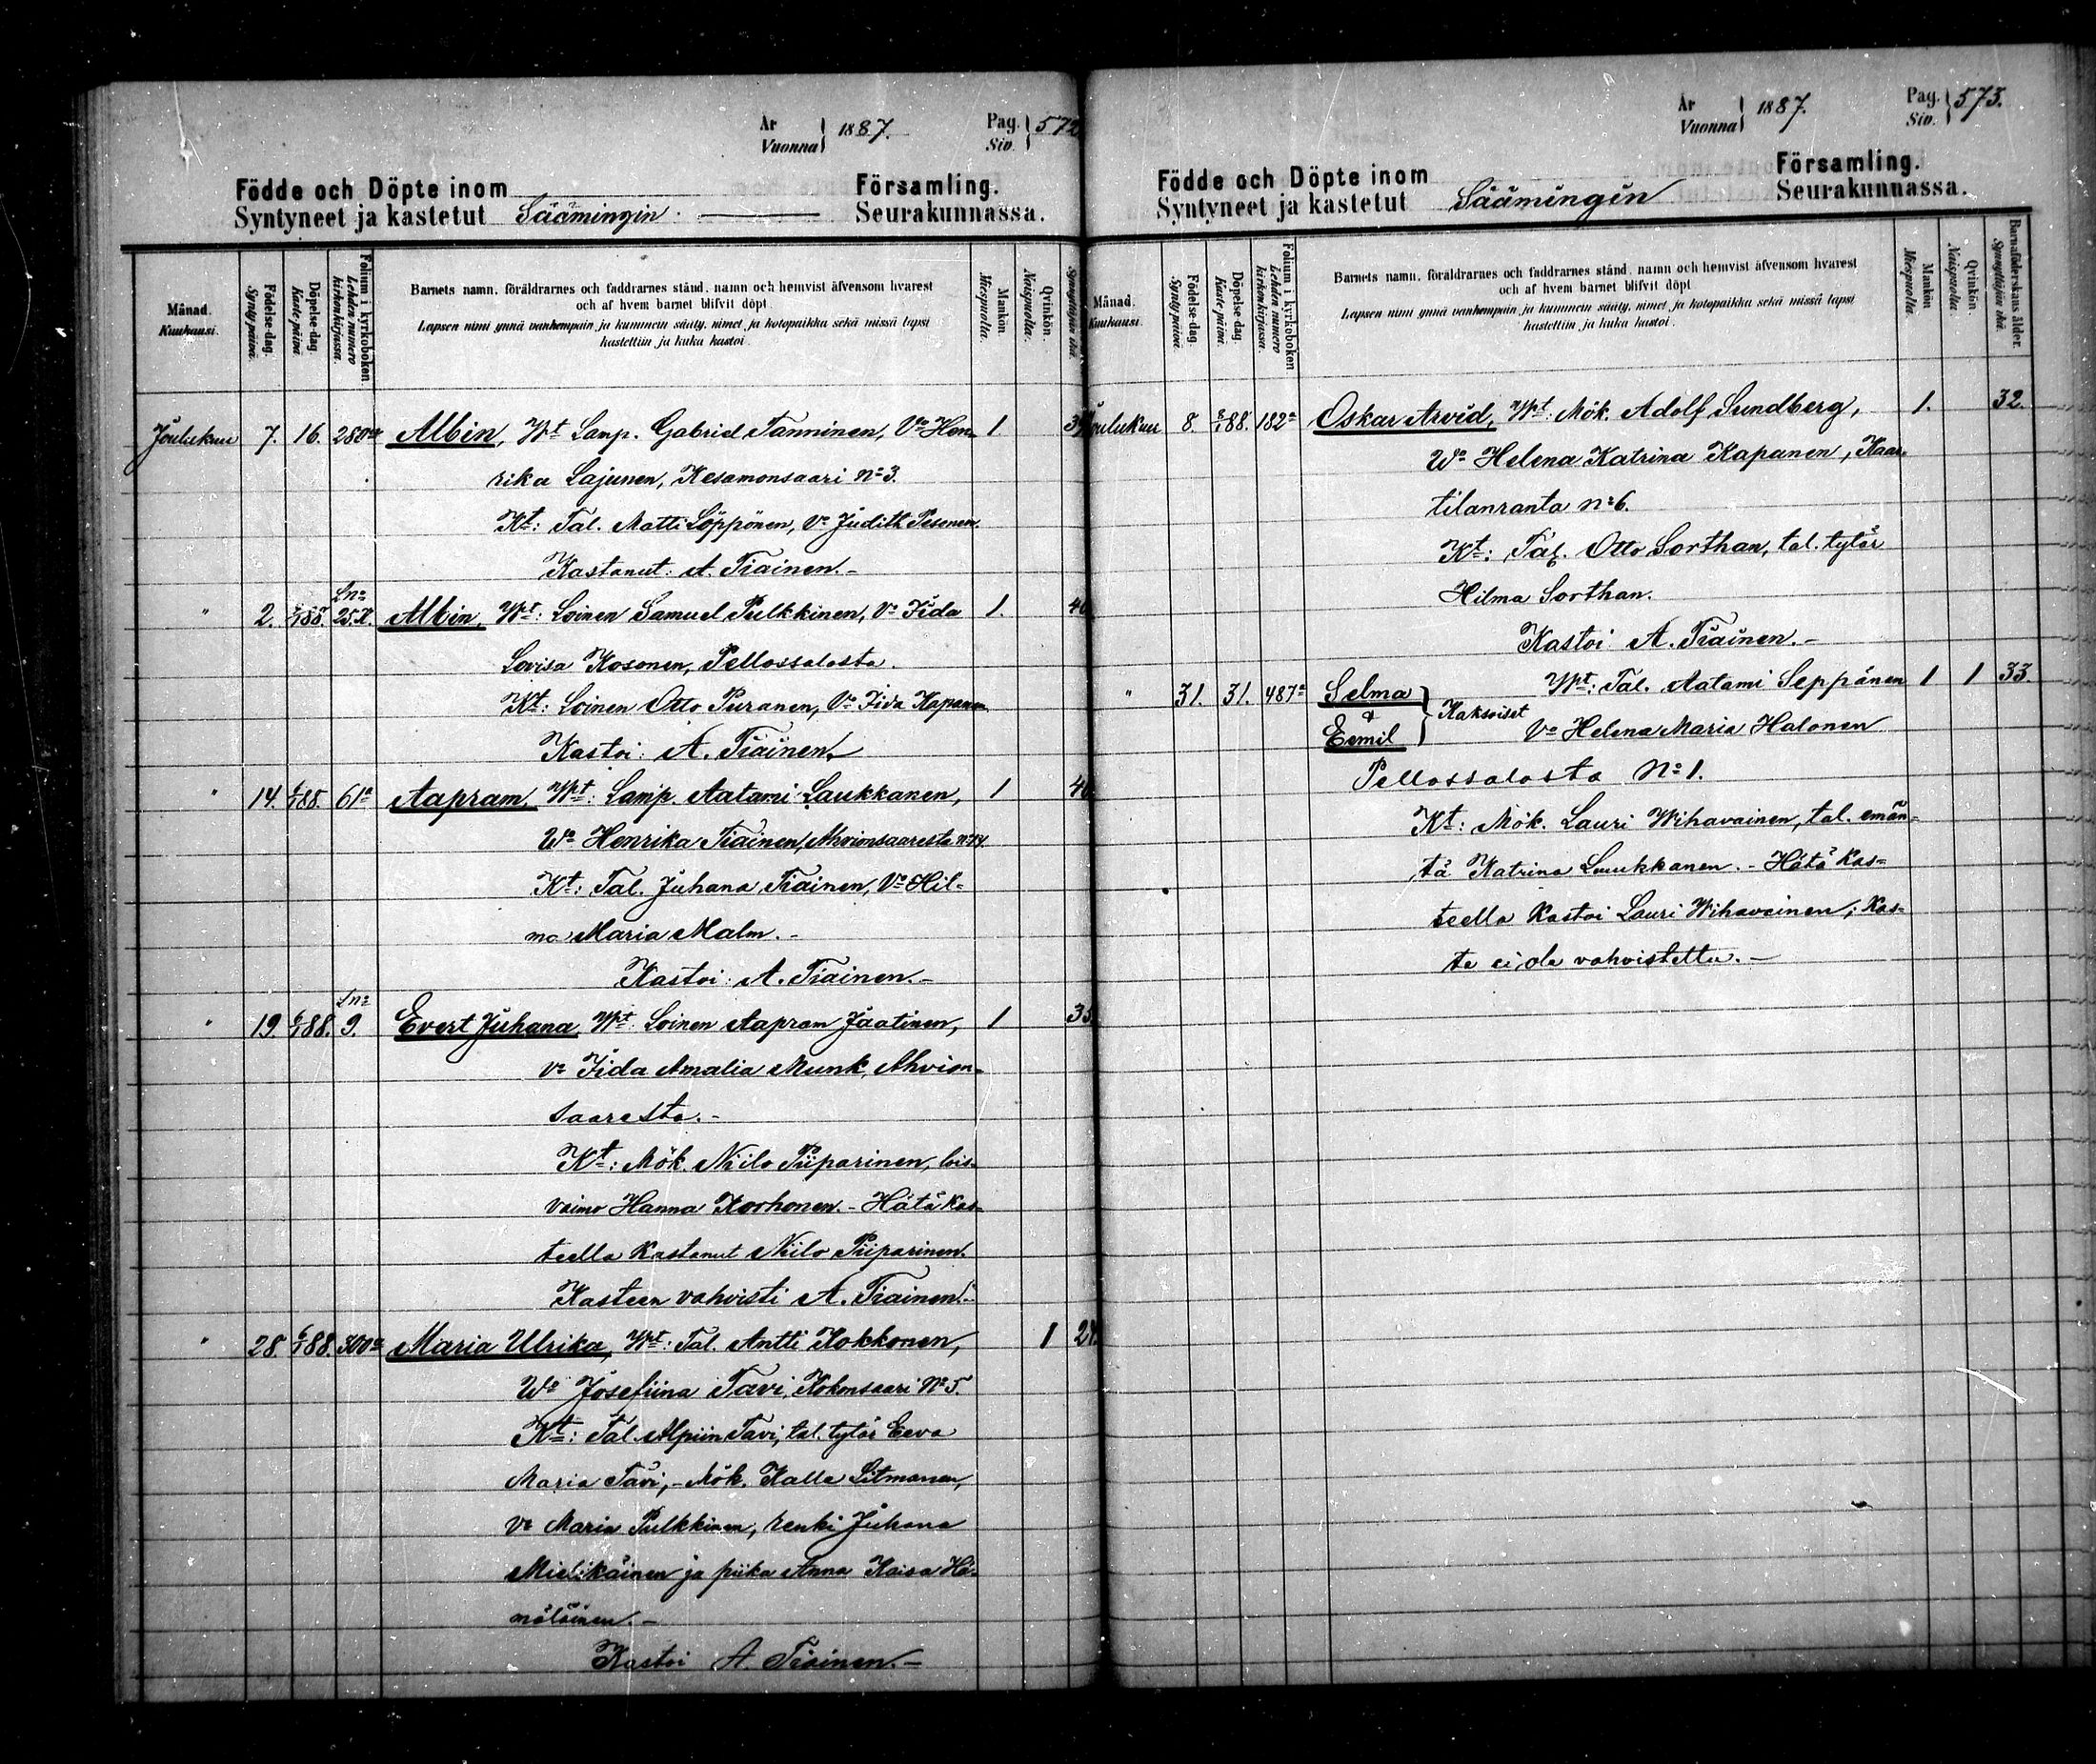 År
Vuonna } 1887.
Pag.
Siv. } 572
Födde och Döpte inom Församling.
Syntyneet ja kastetut Säämingin Seurakunnassa.
Månad.
Kuukausi.
Födelse-dag.
Syntypäivä.
Döpelse-dag
Kaste-päivä
Folium i kyrkoboken
Lehden numero
kirkonkirjassa.
Barnets namn, föräldrarnes och faddrarnes stånd, namn och hemvist äfvensom hvarest
och af hvem barnet blifvit döpt.
Lapsen nimi ynnä vanhempain ja kummein sääty, nimet ja kotopaikka sekä missä lapsi
kastettiin ja kuka kastoi.
Mankön.
Miespuolta.
Qvinkön.
Naispuolta.
Synnyttäjän ikä.
Joulukuu 7. 16. 280 Albin, Wt Lamp. Gabriel Tanninen, Vo Hen- 1.
rika Lajunen, Kesamonsaari No 3.
Kt: Tal. Matti Löppönen, Vo Judith Pesonen.
Kastanut: A. Tiainen.-
" 2. 88. Ln 25. Albin, Wt: Loinen Samuel Pulkkinen, Vo Iida 1. 40
Lovisa Kosonen, Pellossalosta.
Kt: Loinen Otto Puranen, Vo Iida Kapanen
Kastoi: A. Tiainen.
" 14. 88. 61a Aapram, Wt: Lamp. Aatami Laukkanen, 1 40
Wo Henrika Tiainen, Ahvionsaaresta
Kt: Tal. Juhana Tiainen, Vo Hil-
ma Maria Malm.-
Kastoi: A. Tiainen.-
" 19. 88. Ln 9. Evert Juhana, Wt: Loinen Aapram Jäätinen, 1 35
vo Iida Amalia Munk, Ahvion-
saaresta.-
Kt: Mök. Niilo Piiparinen, lois-
vaimo Hanna Korhonen.- Hätä kas-
teella kastanut Niilo Piiparinen.
Kasteen vahvisti A. Tiainen.-
" 28. 88. 300a Maria Ulrika, Wt: Tal. Antti Kokkonen, 1
Wo Josefiina Tavi, Kokonsaari No 5.
Kt: Tal. Alpiin Tavi, tal. tytär Eeva
Maria Tavi,- Mök. Kalle Litmanen,
Vo Maria Pulkkinen, renki Juhana
Mielikäinen ja piika Anna Kaisa Hä-
mäläinen.-
Kastoi A. Tiainen.-
År
Vuonna } 1887.
Pag.
Siv. } 573.
Födde och Döpte inom Församling.
Syntyneet ja kastetut Säämingin Seurakunnassa.
Månad.
Kuukausi.
Födelse-dag.
Syntypäivä.
Döpelse-dag
Kaste-päivä.
Folium i kyrkoboken
Lehden numero
kirkonkirjassa.
Barnets namn, föräldrarnes och faddrarnes stånd, namn och hemvist äfvensom hvarest
och af hvem barnet blifvit döpt
Lapsen nimi ynnä vanhempain ja kummein sääty, nimet ja kotopaikka sekä missä lapsi
kastettiin ja kuka kastoi.
Mankön
Miespuolta.
Qvinkön.
Naispuolta
Barnaföderskans ålder.
Synnyttäjän ikä.
Joulukuu 8. 8/1 88. 182a Oskar Arvid, Wt: Mök. Adolf Sundberg, 1. 32.
Wo Helena Katrina Kapanen, Kaar-
tilanranta No 6.
Kt: Tal. Otto Sorthan, tal. tytär
Hilma Sorthan.
Kastoi A. Tiainen.-
" 31. 31. 487a Selma Wt: Tal. Aatami Seppänen 1 1 33.
& } Kaksoiset
Eemil Vo Helena Maria Halonen
Pellossalosta No 1.
Kt: Mök. Lauri Wihavainen, tal. emän-
tä Katrina Luukkanen.- Hätä kas-
teella kastoi Lauri Wihavainen; kas-
te ei ole vahvistettu.-